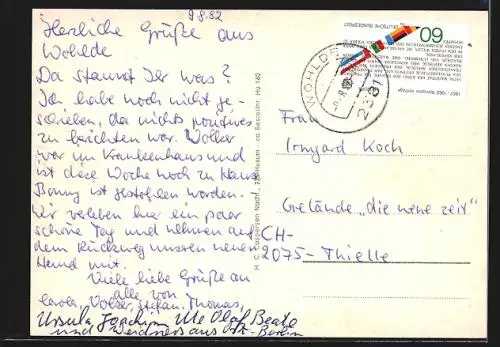 9.8.82
Herzliche Grüße aus
Wohlde
Da staunst Ihr was?
Ich habe noch nicht ge-
schrieben, da nichts positives
zu berichten war. Volker
war im Krankenhaus und
ist diese Woche noch zu Hause
Bonny ist gestohlen worden.
Wir verleben hier ein paar
schöne Tag und nehmen auf
dem Rückweg unseren neuen
Hund mit.
Viele liebe Grüße an
alle von
Volker, Stefan, Thomas,
Ursula Joachim Ute Olaf Beate
und aus Berlin
H. C. Caspersen Nachf., 225 Husum - ca Bestellnr. Hu 160
DEUTSCHE BUNDESPOST
60
WOHLDE
2381
Frau
Irmgard Koch
Gelände „die neue zeit"
CH-
2075-Thielle